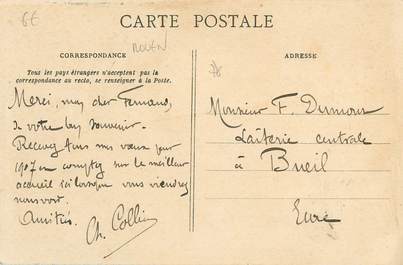 6€
ROUEN
CARTE POSTALE
CORRESPONDANCE
ADRESSE
Tous les pays étrangers n'acceptent pas la
correspondance au recto, se renseigner à la Poste.
Merci, my dear Fernand,
de votre bon souvenir.
Recevez tous mes vœux pour
1907 en comptez sur le meilleur
accueil ici lorsque vous viendrez
nous voir.
Amitiés.
Ch. Collin
Monsieur F. Dumour
Laiterie centrale
à Bueil
Eure